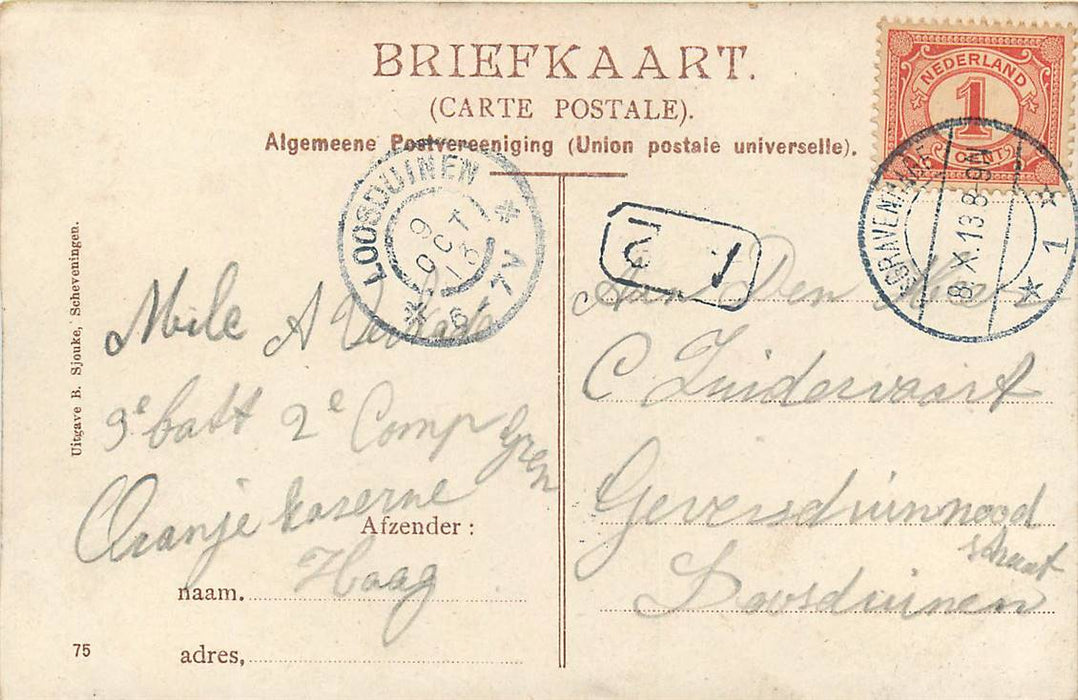 BRIEFKAART.
(CARTE POSTALE).
Algemeene Postvereeniging (Union postale universelle).
NEDERLAND
1
CENT
'SGRAVENHAGE
8.X.13 8-9N
* 1 *
LOOSDUINEN
9 OCT 13
* 6-7V *
Uitgave B. Sjouke, Scheveningen.
Mile A
3e batt 2e Comp Gren
Oranje kaserne
Haag
Afzender :
naam.
adres,
75
Aan Den Heer
C Zuidervaart
straat
Loosduinen